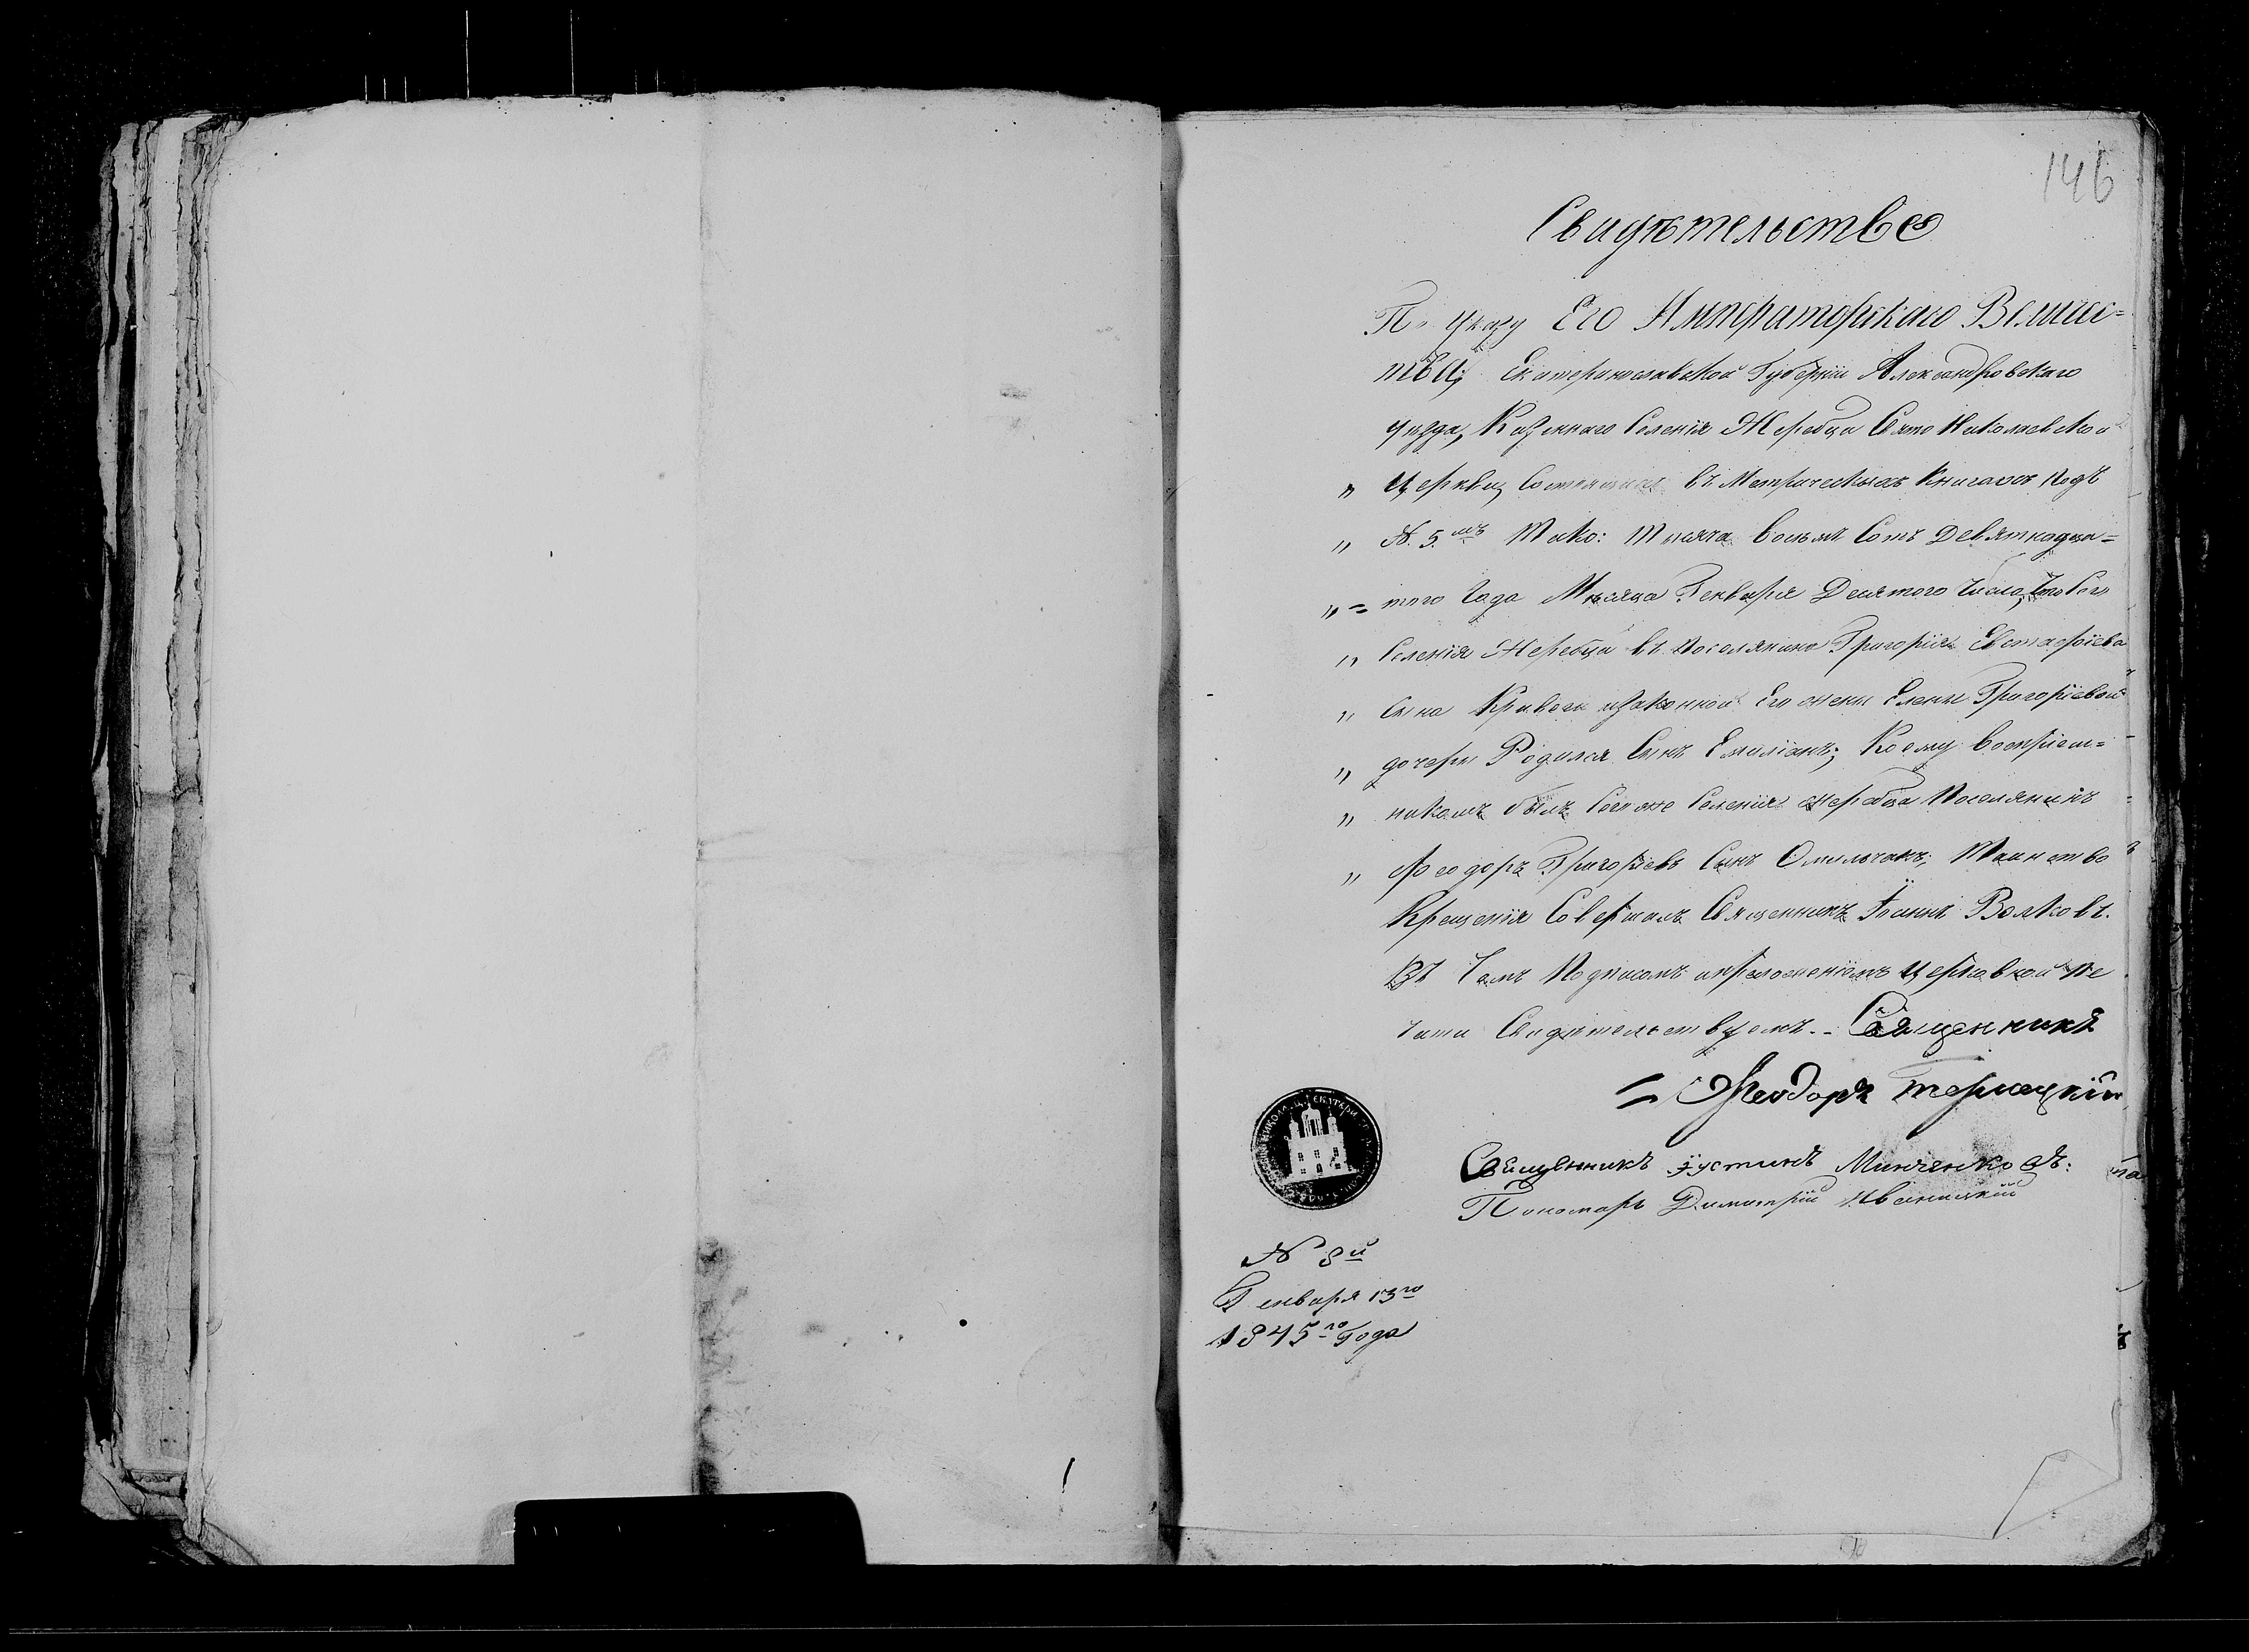 146
Свидѣтельство
По указу Его Императорскаго Величес=
тва, Екатеринославской Губерніи Александровскаго
уѣзда, Казеннаго Селенія Жеребца Свято Николаевской
„ Церкви, въ Метрическихъ Книгахъ подъ
„ №. 5.мъ Тако: Тысяча восѣмъ Сотъ Девятнадца=
„ = того Года Мѣсяца Генваря Девятого Числа, Того
„ Селенія Жеребца въ поселянина Григорія Евстафіева
„ Сына Кривого изаконной Его жены Елены Григоріевой
„ дочери Родился Сынъ Емиліанъ; Коему воспріем=
„ никомъ былъ Того же Селенія жеребца Поселянинъ
„ Феодоръ Григоріевъ Сынъ Омильчакъ; Таинство
Крещенія Совершалъ Священникъ Іоаннъ Волковъ.
Въ Чемъ Подписомъ иприложеніемъ церковной пе
чати Свидѣтельствуемъ.- Священникъ
= Феодоръ Терлецкій
Священникъ Іустинъ Минченковъ:
Пономарь Димитрій Иваницкій
№ 8й
Генваря 13го
1845го Года